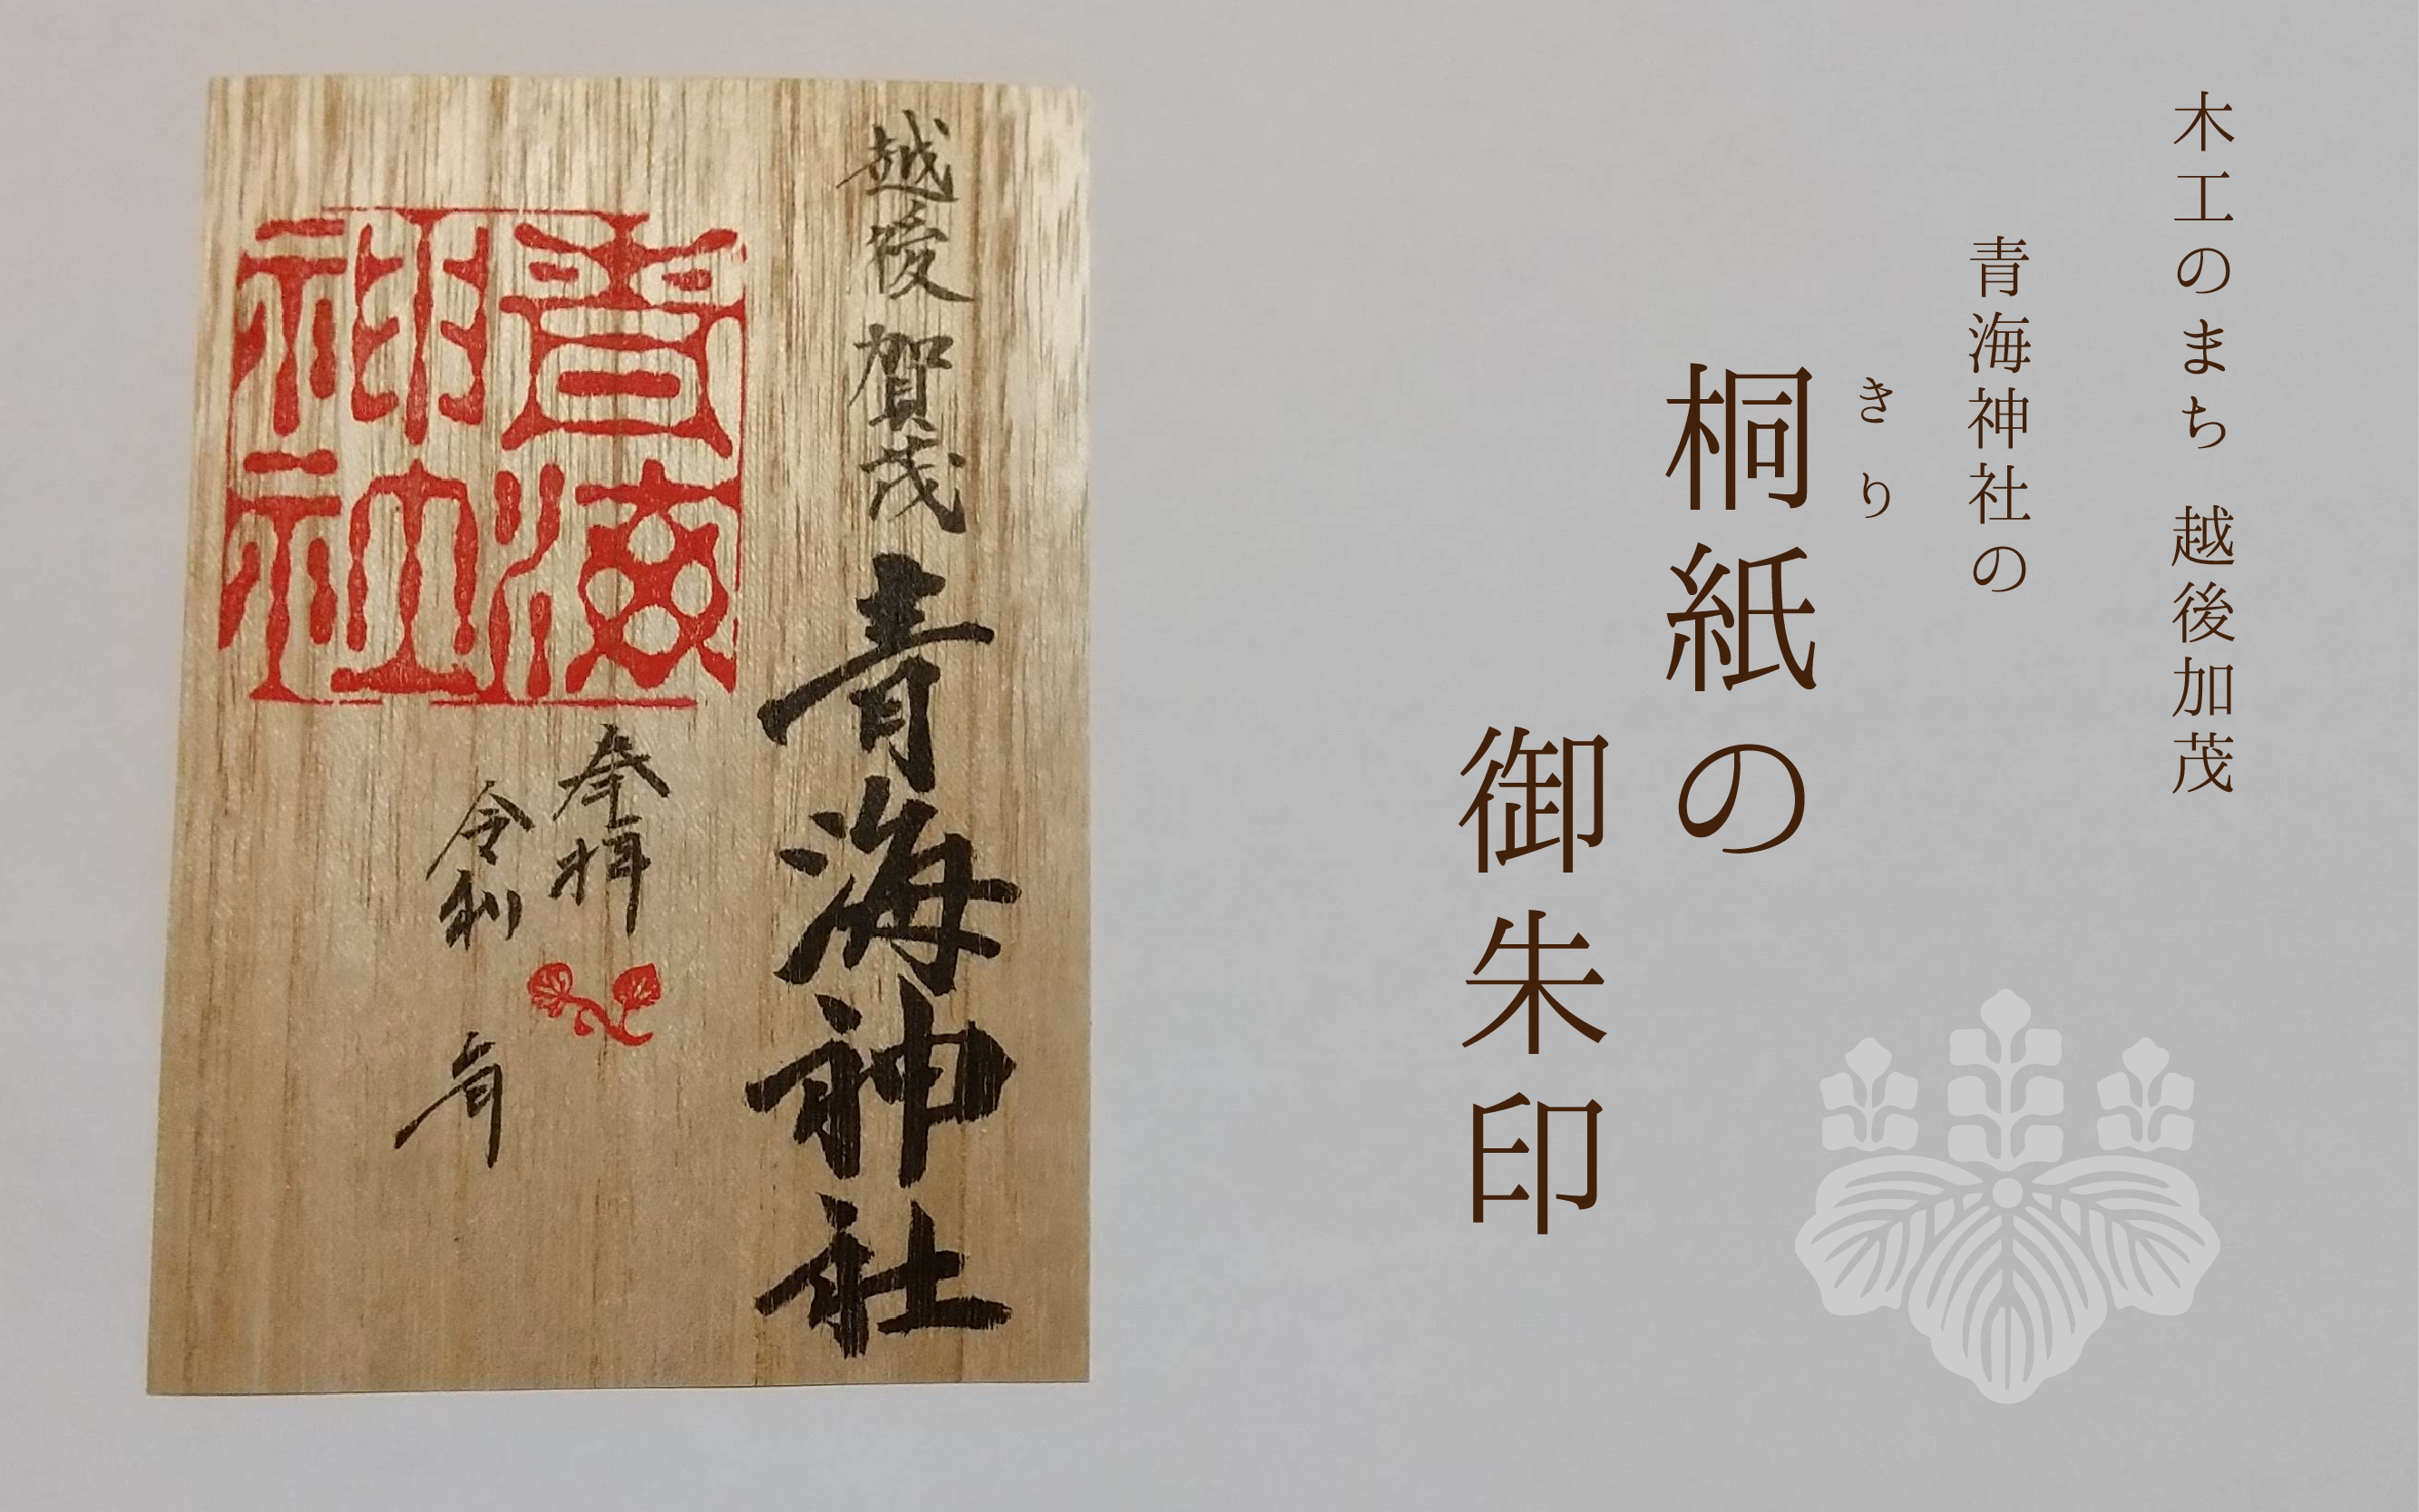 木工のまち 越後加茂
青海神社の
きり
桐紙の
御朱印
越後賀茂
青海神社
青海
神社
奉拝
令和